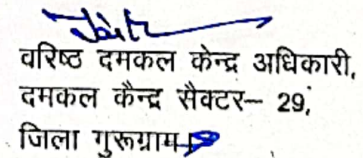 वरिष्ठ दमकल केन्द्र अधिकारी,
दमकल कैन्द्र सैक्टर– 29,
जिला गुरूग्राम।